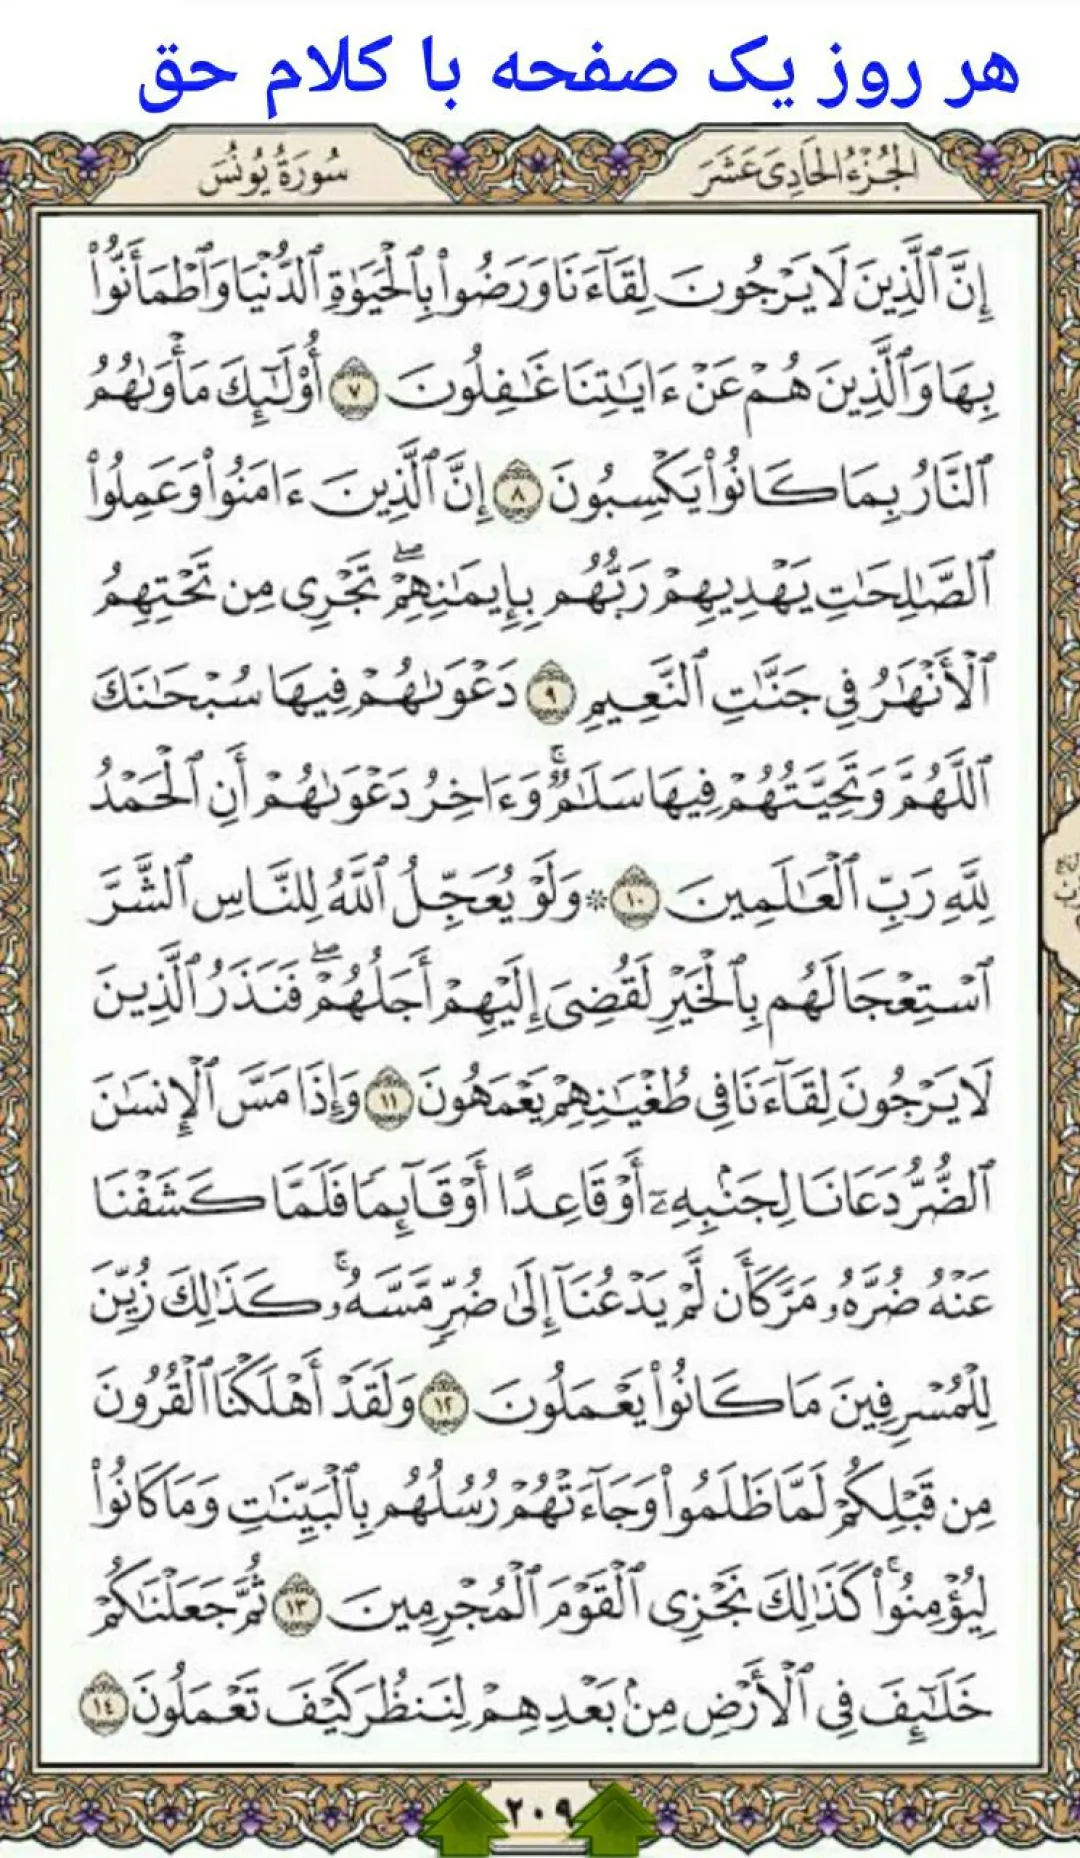 هر روز یک صفحه با کلام حق
الجُزْءُ الحَادِيَ عَشَرَ
سُورَةُ يُونُسَ
إِنَّ ٱلَّذِينَ لَا يَرْجُونَ لِقَآءَنَا وَرَضُوا۟ بِٱلْحَيَوٰةِ ٱلدُّنْيَا وَٱطْمَأَنُّوا۟
بِهَا وَٱلَّذِينَ هُمْ عَنْ ءَايَـٰتِنَا غَـٰفِلُونَ ٧ أُو۟لَـٰٓئِكَ مَأْوَىٰهُمُ
ٱلنَّارُ بِمَا كَانُوا۟ يَكْسِبُونَ ٨ إِنَّ ٱلَّذِينَ ءَامَنُوا۟ وَعَمِلُوا۟
ٱلصَّـٰلِحَـٰتِ يَهْدِيهِمْ رَبُّهُم بِإِيمَـٰنِهِمْ ۖ تَجْرِى مِن تَحْتِهِمُ
ٱلْأَنْهَـٰرُ فِى جَنَّـٰتِ ٱلنَّعِيمِ ٩ دَعْوَىٰهُمْ فِيهَا سُبْحَـٰنَكَ
ٱللَّهُمَّ وَتَحِيَّتُهُمْ فِيهَا سَلَـٰمٌ ۚ وَءَاخِرُ دَعْوَىٰهُمْ أَنِ ٱلْحَمْدُ
لِلَّهِ رَبِّ ٱلْعَـٰلَمِينَ ١٠ ۞ وَلَوْ يُعَجِّلُ ٱللَّهُ لِلنَّاسِ ٱلشَّرَّ
ٱسْتِعْجَالَهُم بِٱلْخَيْرِ لَقُضِىَ إِلَيْهِمْ أَجَلُهُمْ ۖ فَنَذَرُ ٱلَّذِينَ
لَا يَرْجُونَ لِقَآءَنَا فِى طُغْيَـٰنِهِمْ يَعْمَهُونَ ١١ وَإِذَا مَسَّ ٱلْإِنسَـٰنَ
ٱلضُّرُّ دَعَانَا لِجَنۢبِهِۦٓ أَوْ قَاعِدًا أَوْ قَآئِمًا فَلَمَّا كَشَفْنَا
عَنْهُ ضُرَّهُۥ مَرَّ كَأَن لَّمْ يَدْعُنَآ إِلَىٰ ضُرٍّ مَّسَّهُۥ ۚ كَذَٰلِكَ زُيِّنَ
لِلْمُسْرِفِينَ مَا كَانُوا۟ يَعْمَلُونَ ١٢ وَلَقَدْ أَهْلَكْنَا ٱلْقُرُونَ
مِن قَبْلِكُمْ لَمَّا ظَلَمُوا۟ وَجَآءَتْهُمْ رُسُلُهُم بِٱلْبَيِّنَـٰتِ وَمَا كَانُوا۟
لِيُؤْمِنُوا۟ ۚ كَذَٰلِكَ نَجْزِى ٱلْقَوْمَ ٱلْمُجْرِمِينَ ١٣ ثُمَّ جَعَلْنَـٰكُمْ
خَلَـٰٓئِفَ فِى ٱلْأَرْضِ مِنۢ بَعْدِهِمْ لِنَنظُرَ كَيْفَ تَعْمَلُونَ ١٤
٢٠٩